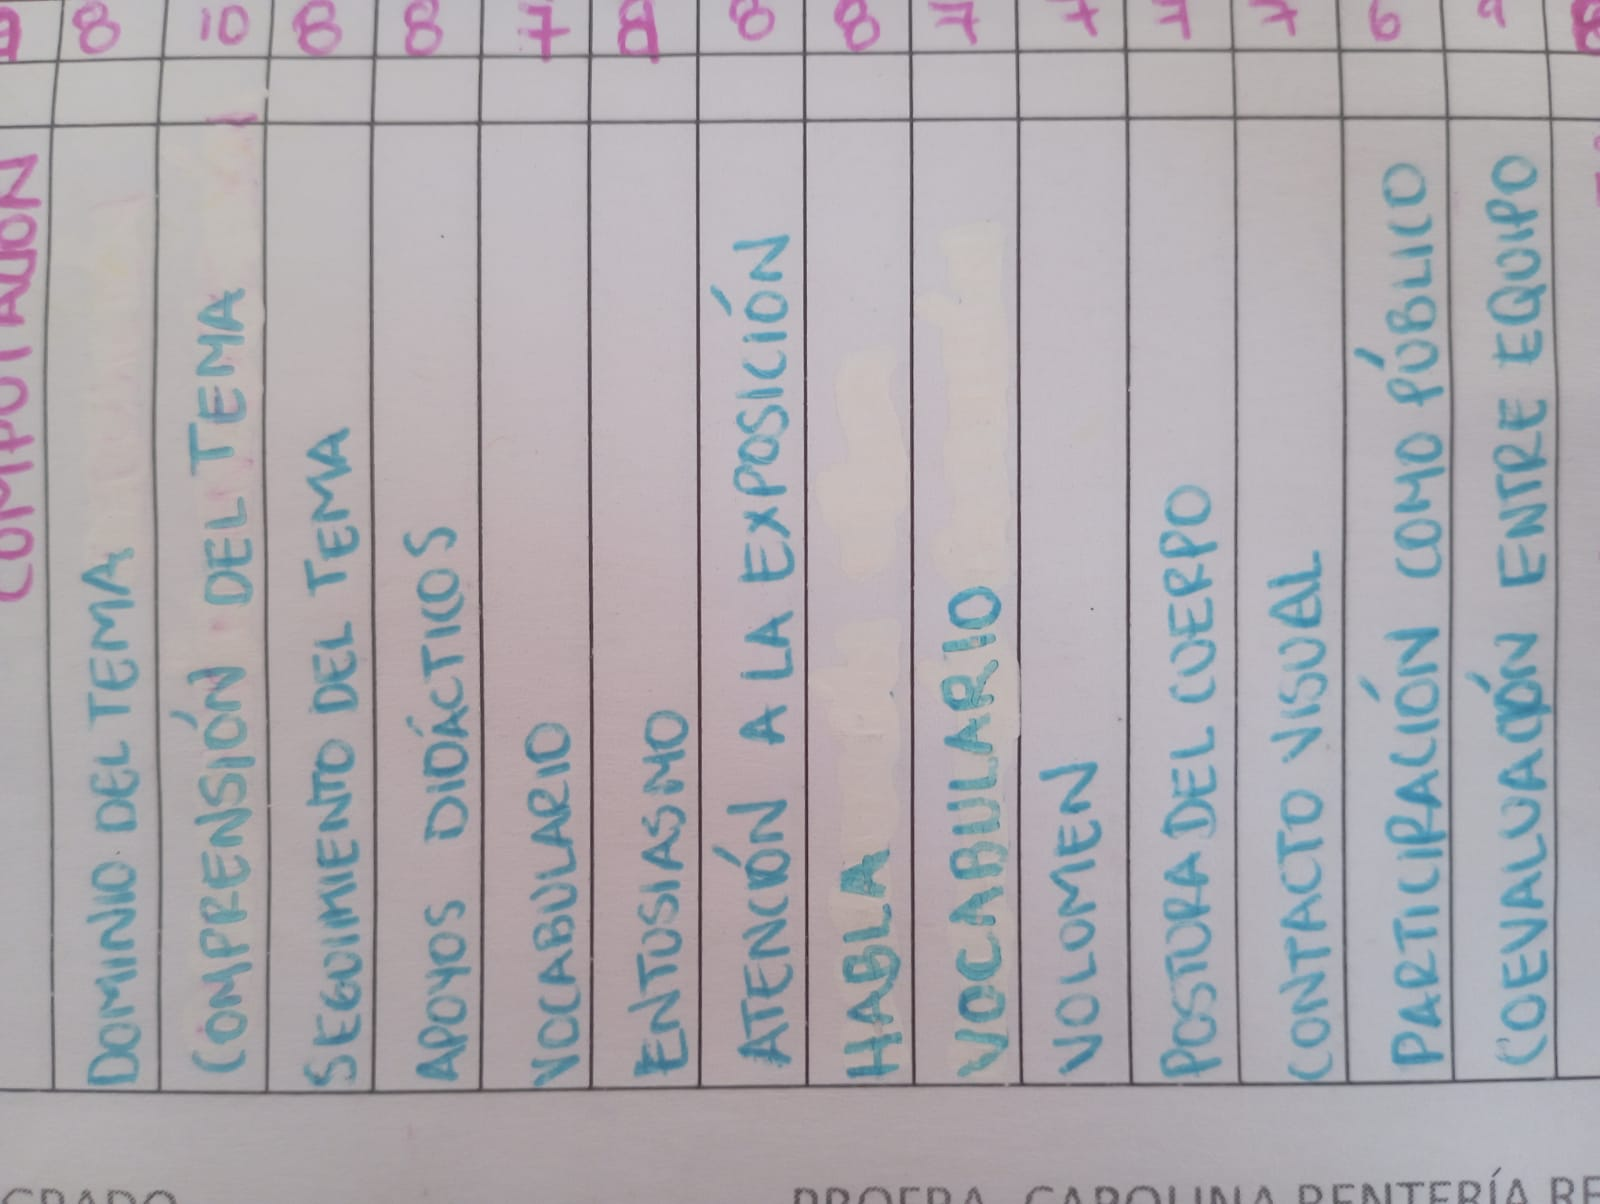 9 8 10 8 8 7 8 8 8 7 7 7 7 6 9
COMPUTACIÓN
DOMINIO DEL TEMA
COMPRENSIÓN DEL TEMA
SEGUIMIENTO DEL TEMA
APOYOS DIDÁCTICOS
VOCABULARIO
ENTUSIASMO
ATENCIÓN A LA EXPOSICIÓN
HABLA
VOCABULARIO
VOLOMEN
POSTURA DEL CUERPO
CONTACTO VISUAL
PARTICIPACIÓN COMO PÚBLICO
COEVALUACIÓN ENTRE EQUIPO
GRADO
PROFRA. CAROLINA RENTERÍA RE